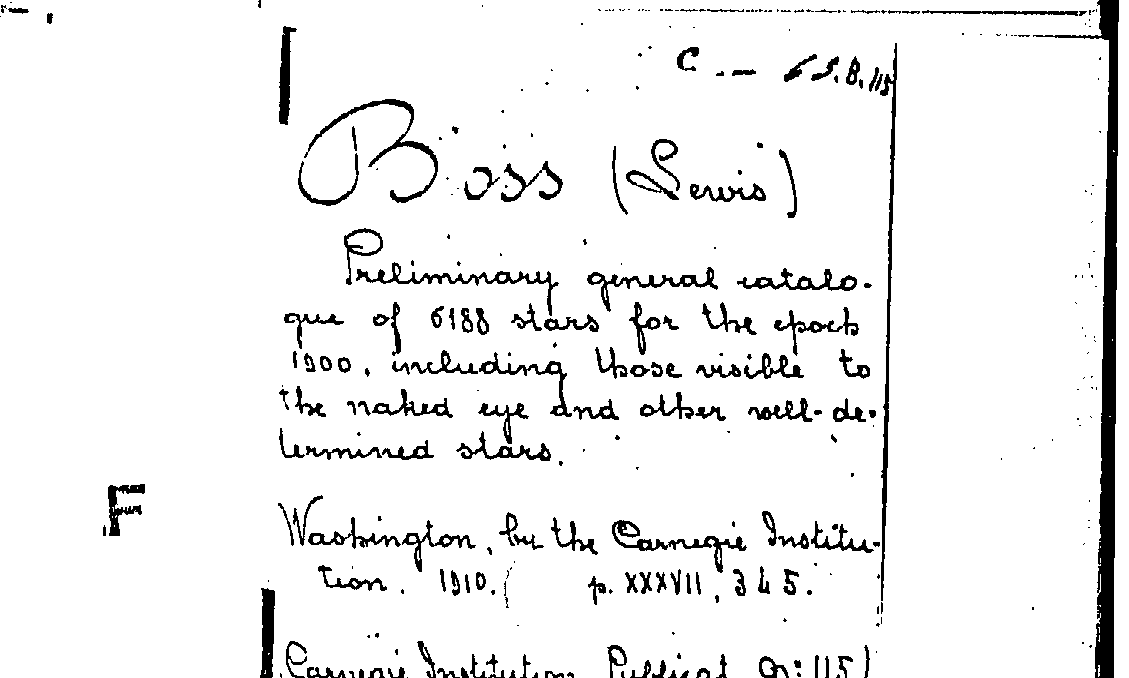 C. — 6 S.B.115
Boss (Lewis)
Preliminary general catalo-
gue of 6188 stars for the epoch
1900, including those visible to
the naked eye and other well-de-
termined stars.
F
Washington, by the Carnegie Institu-
tion. 1910. p. XXXVII, 345.
Carnegie Institution. Publicat. N: 115)